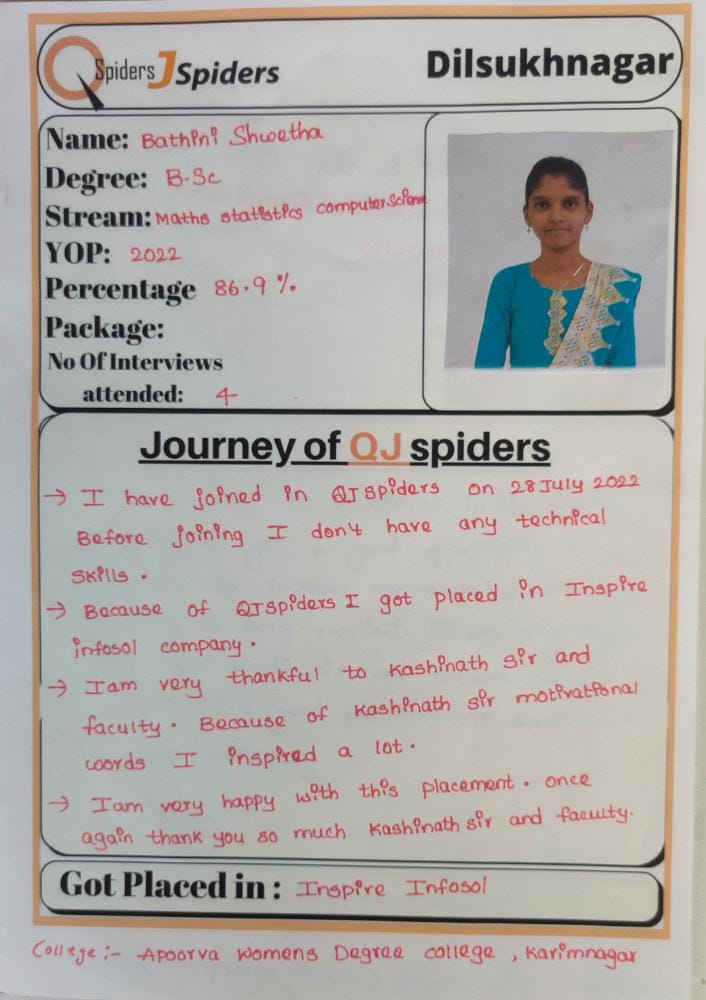 QSpiders JSpiders
Dilsukhnagar
Name: Bathini Shwetha
Degree: B.Sc
Stream: Maths statistics computer Science
YOP: 2022
Percentage 86.9 %
Package:
No Of Interviews
attended: 4
Journey of QJ spiders
→ I have joined in QJ spiders on 28 July 2022
Before joining I don't have any technical
skills .
→ Because of QJ spiders I got placed in Inspire
infosol company .
→ I am very thankful to Kashinath sir and
faculty . Because of Kashinath sir motivational
words I inspired a lot .
→ I am very happy with this placement . once
again thank you so much Kashinath sir and faculty.
Got Placed in : Inspire Infosol
College :- Apoorva Womens Degree college , Karimnagar